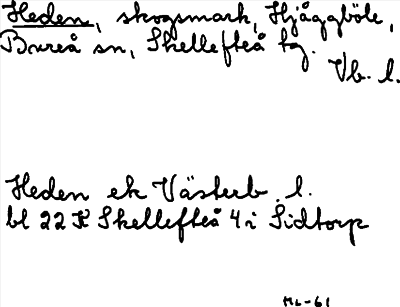 Heden, skogsmark, Hjåggböle,
Bureå sn, Skellefteå tg.
Vb. l.
Heden ek Västerb. l.
bl 22 K Skellefteå 4 i Sidtorp
ML-61